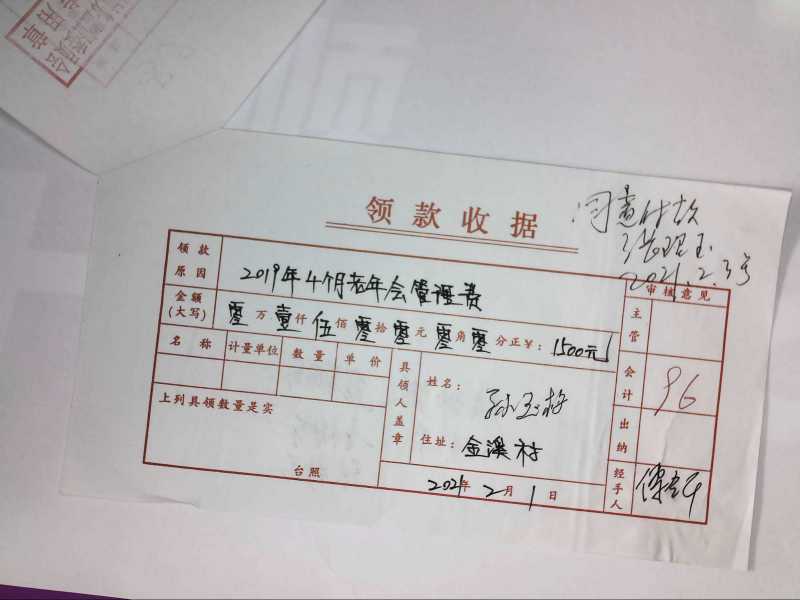 领款收据
同意付款
2021.2.3号
领款原因 2019年4个月老年会管理费
审核意见
金额(大写) 零万壹仟伍佰零拾零元零角零分正¥:1500元
主管
名称 计量单位 数量 单价
具领人盖章
姓名:孙玉梅
会计 96
上列具领数量是实
住址:金溪村
出纳
台照
2021年2月1日
经手人